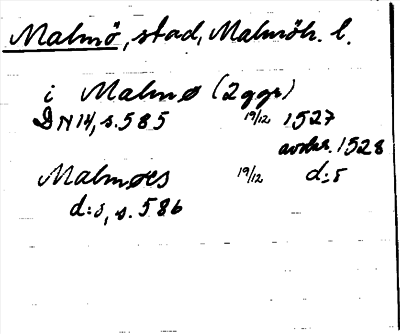 Malmö, stad, Malmöh. l.
i Malmø (2ggr)
DN 14, s. 585 19/12 1527
avskr. 1528
Malmøes 19/12 d:o
d:o, s. 586